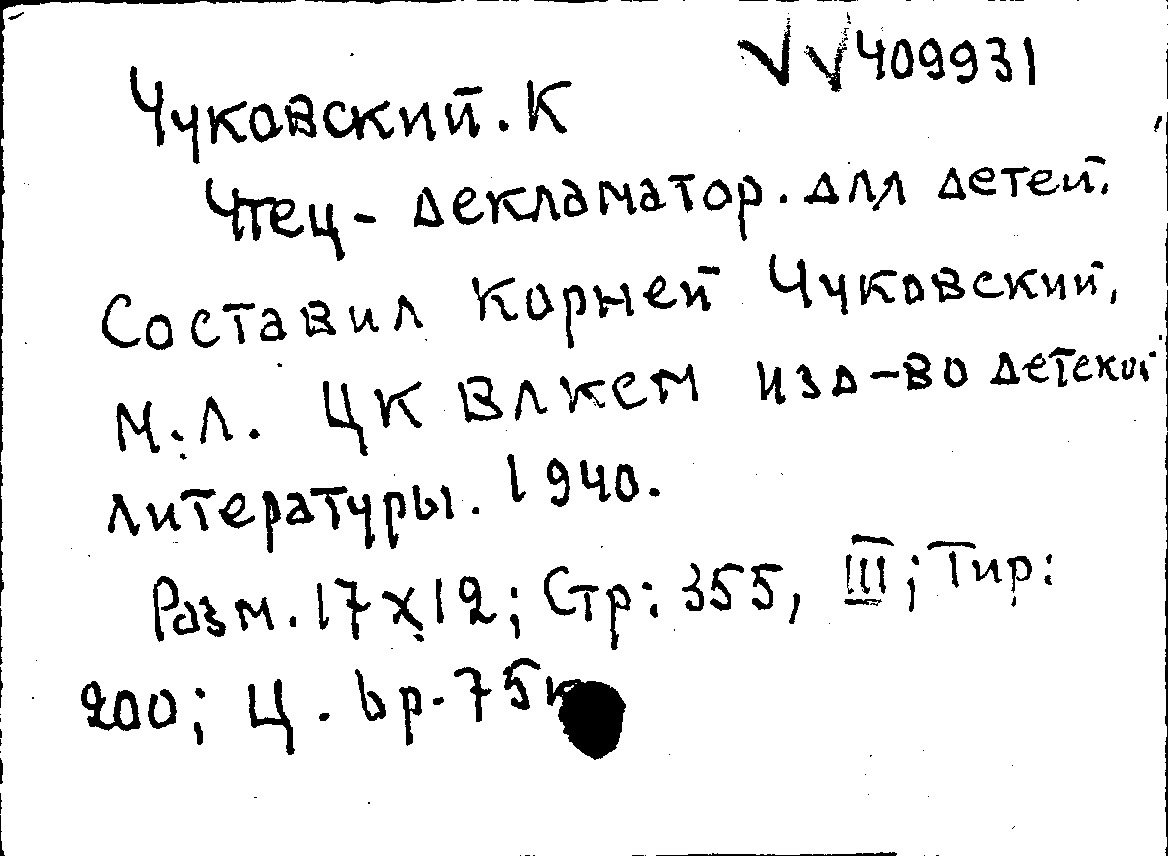 √√409931
Чуковский. К
Чтец- декламатор. для детей.
Составил Корней Чуковский,
М.Л. ЦК ВЛКСМ изд-во детской
литературы. 1940.
Разм. 17х12; Стр: 355, III; Тир:
200; Ц. 6р. 75к